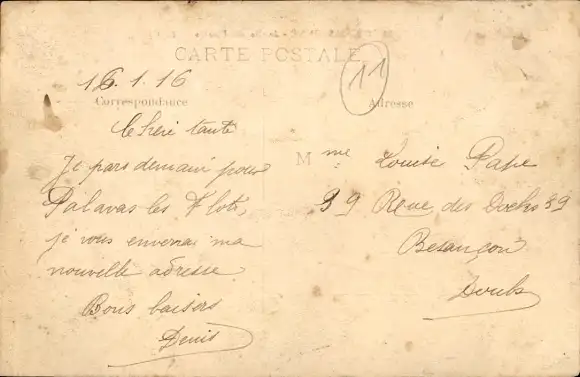 CARTE POSTALE
11
16.1.16
Correspondance
Adresse
Chère tante
Je pars demain pour
Palavas les Flots,
je vous enverrai ma
nouvelle adresse.
Bons baisers
Denis
Mme Louise Pape
39 Rue des Docks 39
Besançon
Doubs